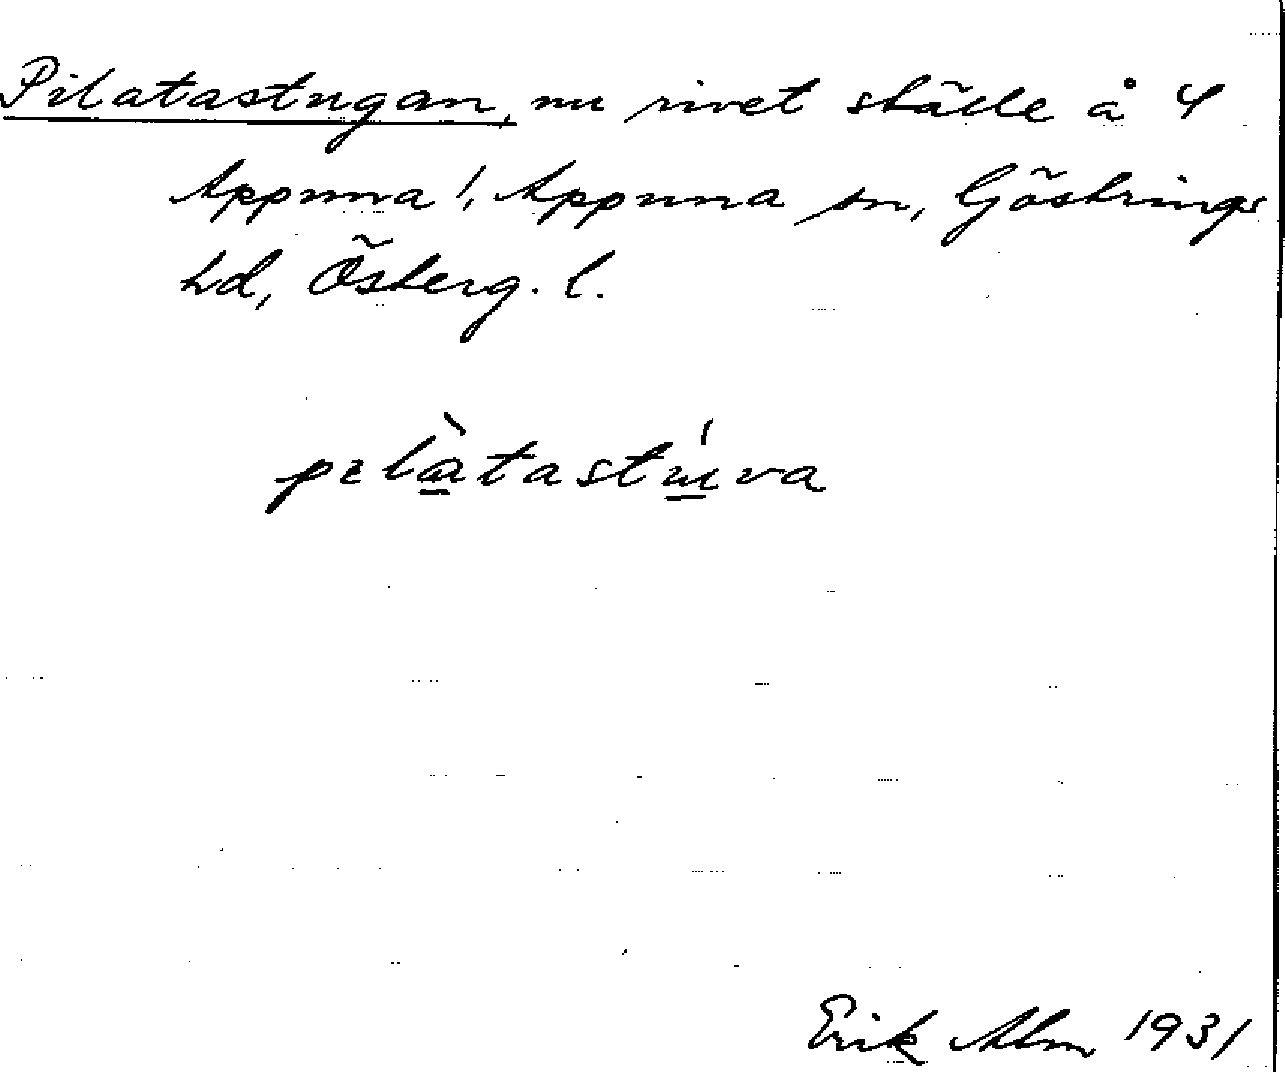 Pilatastugan, nu rivet ställe å 4
Appuna /, Appuna sn, Göstrings
hd, Österg. l.
pelàtastúva
Erik Alm 1931